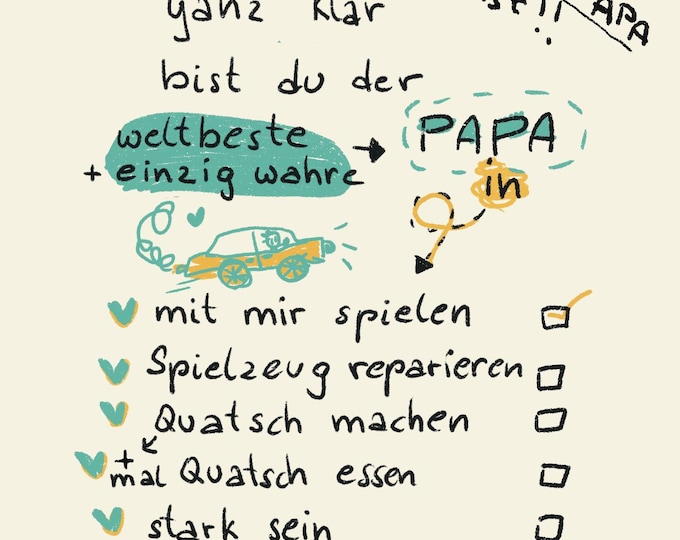 ganz klar
PAPA
bist du der
weltbeste
+ einzig wahre → PAPA
in
mit mir spielen
Spielzeug reparieren
Quatsch machen
+
mal Quatsch essen
stark sein